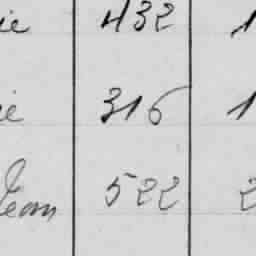 ie 432 1
ie 316 1
Jean 522 2